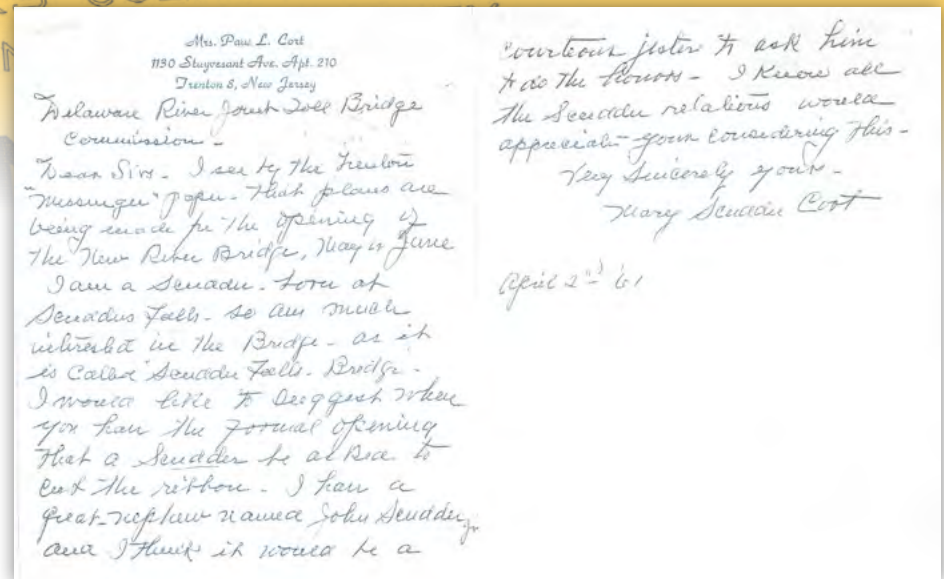 Mrs. Paul L. Cort
1130 Stuyvesant Ave. Apt. 210
Trenton 8, New Jersey
Delaware River Joint Toll Bridge
Commission -
Dear Sirs - I see by the Trenton
"Messenger" paper - that plans are
being made for the opening of
the New River Bridge, May or June
I am a Scudder - born at
Scudders Falls - so am much
interested in the Bridge - as it
is called "Scudder Falls - Bridge -
I would like to suggest when
you have the formal opening
that a Scudder be asked to
cut the ribbon - I have a
great-nephew named John Scudder, Jr
and I think it would be a
courteous jester to ask him
to do the honors - I know all
the Scudder relations would
appreciate your considering this -
Very Sincerely yours -
Mary Scudder Cort
April 2nd '61